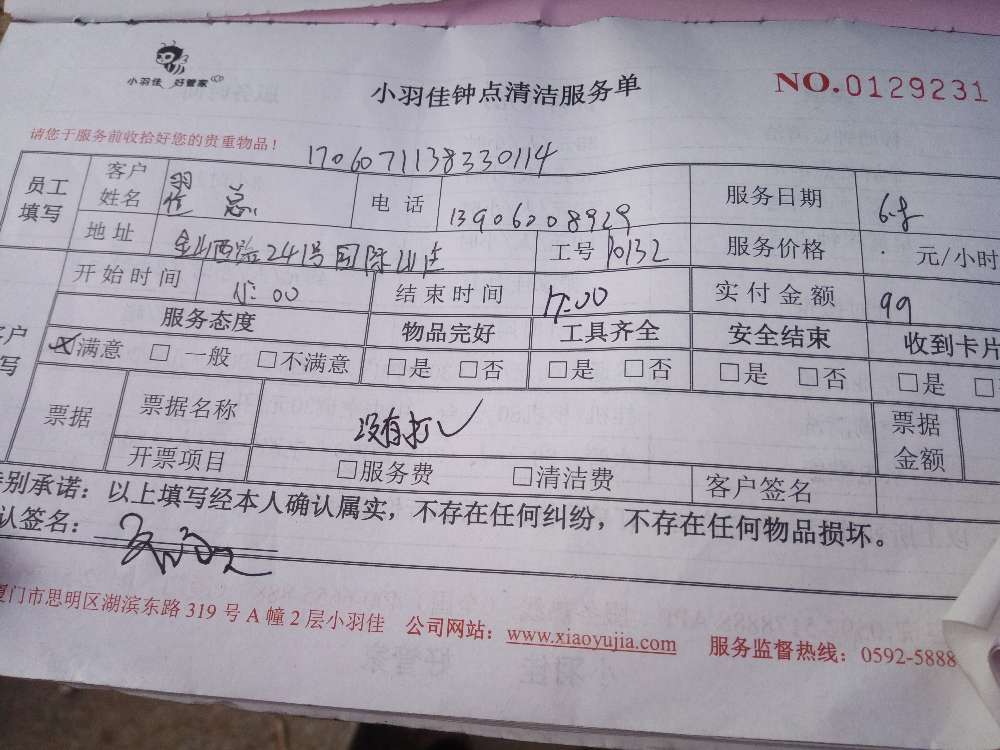 小羽佳 好管家
小羽佳钟点清洁服务单
NO.0129231
请您于服务前收拾好您的贵重物品！
1706071138330114
员工填写 客户姓名 羽佳 总 电话 13906008929 服务日期 6.8
地址 金山西路241号国际山佳 工号 10132 服务价格 元/小时
开始时间 15:00 结束时间 17:00 实付金额 99
服务态度 物品完好 工具齐全 安全结束 收到卡片
☑满意 □ 一般 □不满意 □是 □否 □是 □否 □是 □否 □是
票据 票据名称 没有打 票据金额
开票项目 □服务费 □清洁费 客户签名
别承诺：以上填写经本人确认属实，不存在任何纠纷，不存在任何物品损坏。
认签名：
厦门市思明区湖滨东路 319 号 A 幢 2 层小羽佳 公司网站：www.xiaoyujia.com 服务监督热线：0592-5888